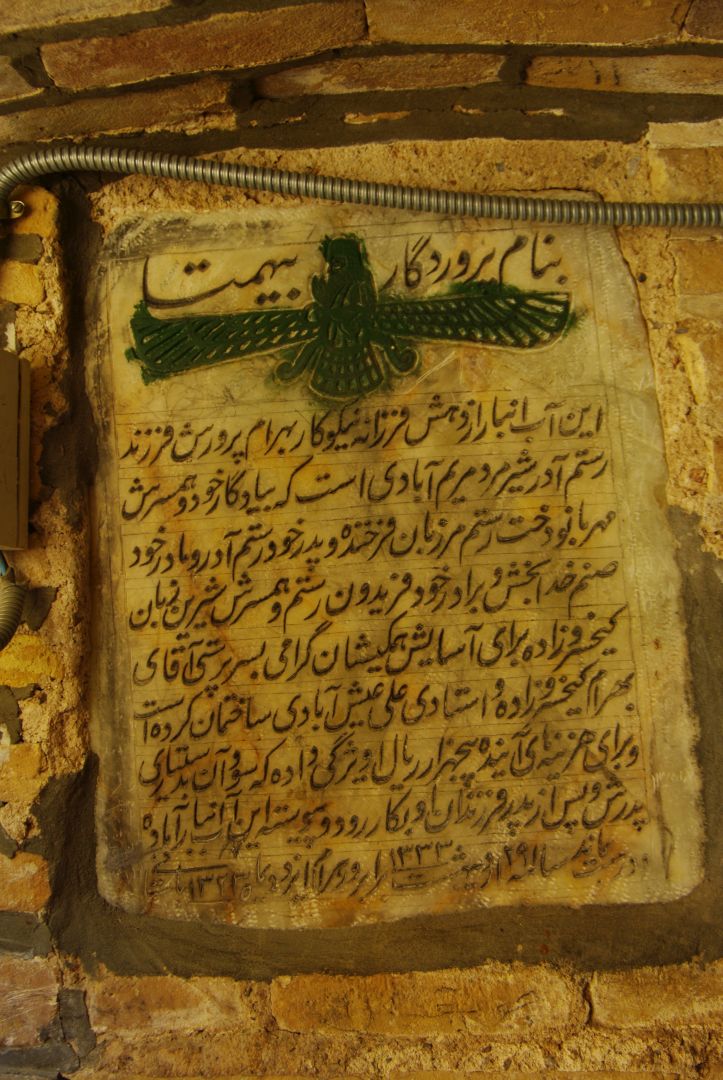 بنام پروردگار بیهمتا
این آب انبار از دهش فرزانه نیکوکار بهرام پرورش فرزند
رستم آدر شیر مرد مریم آبادی است که بیادگار خود و همسرش
مهربانو دخت رستم مرزبان فرخنده و پدر خود رستم آدر و مادر خود
صنم خدابخش و برادر خود فریدون رستم و همسرش شیرین نربان
کیخسرو فرزاده برای آسایش همکیشان گرامی بسرپرستی آقای
بهرام کیخسرو و استادی علی عیش آبادی ساختمان کرده است
و برای هزینه های آینده پنجهزار ریال ویژگی داده که سود آن بدستیاری
پدرش و پس از پدر فرزندان او بکار رود و پیوسته این آب انبار آباده
و درست بماند ۱۳۳۳ برابر و بهرام ایزد ۱۳۲۳